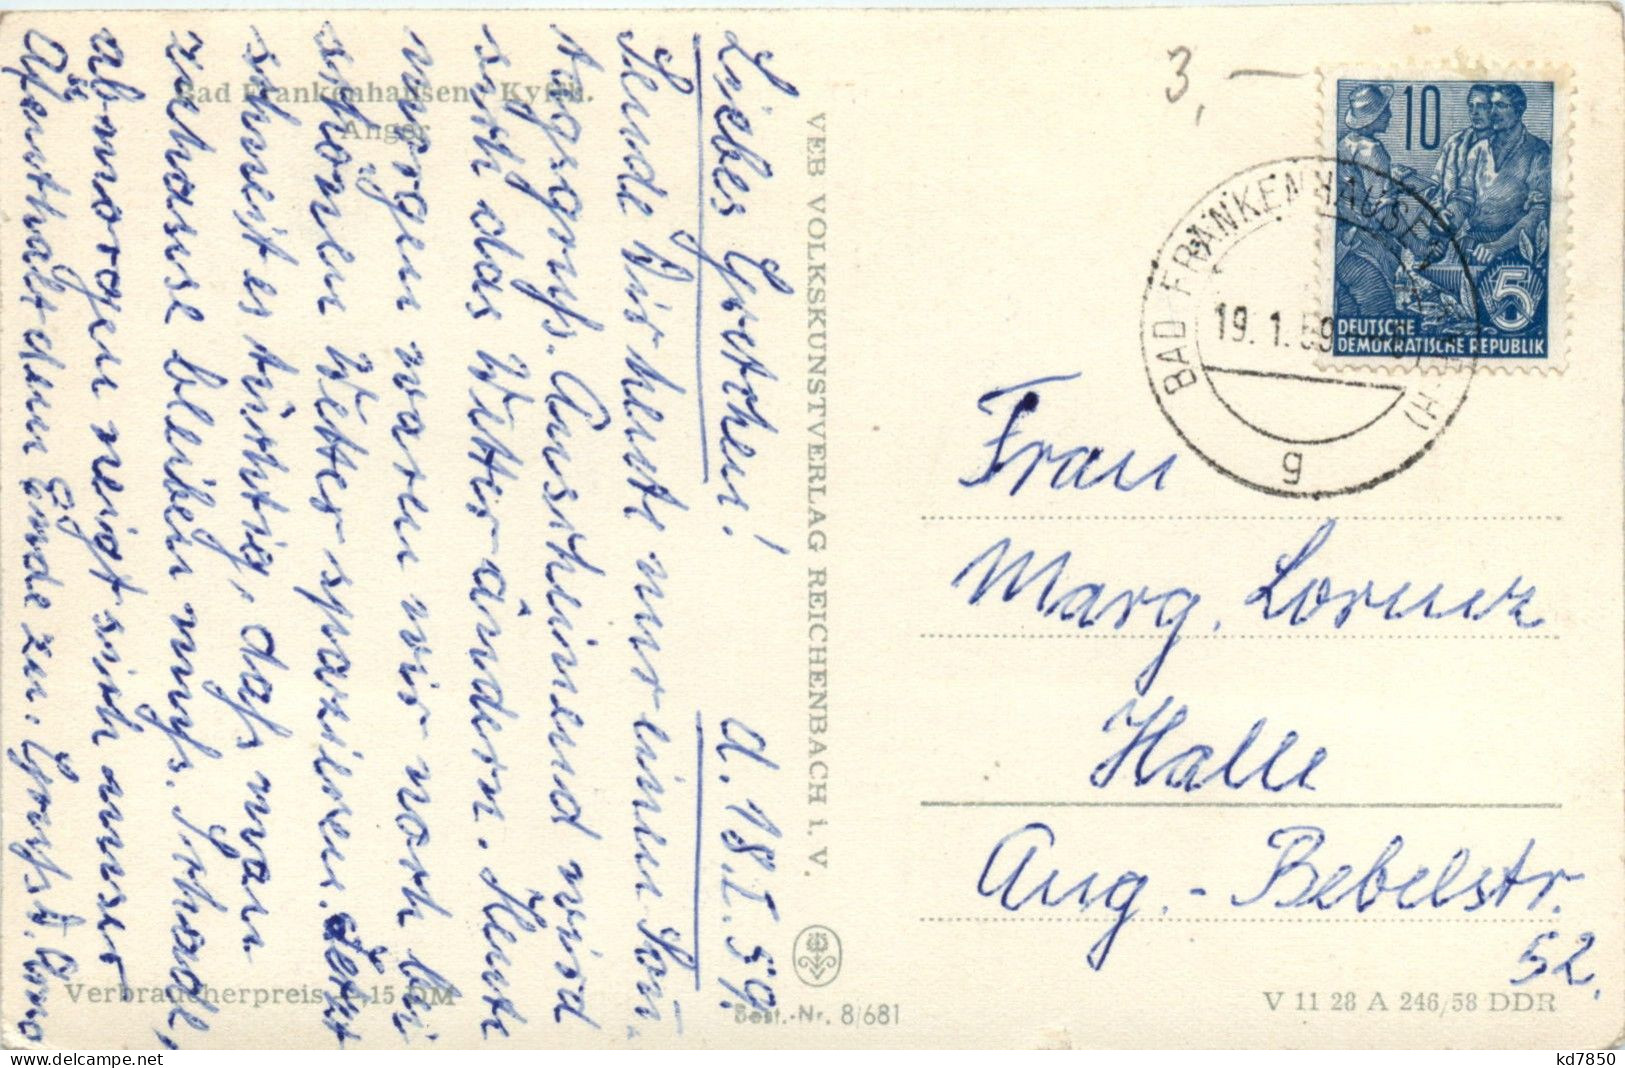 Bad Frankenhausen / Kyffh.
Anger
Liebes Gretchen! d. 18. I. 59.
Sende Dir heute nur einen Sonn-
tagsgruß. Anscheinend wird
sich das Wetter ändern. Heute
morgen waren wir noch bei
schönen Wetter spazieren. Jetzt
schneit es tüchtig, daß man
zuhause bleiben muß. Schade,
übermorgen neigt sich unser
Aufenthalt dem Ende zu. Gruß
VEB VOLKSKUNSTVERLAG REICHENBACH i. V.
Verbraucherpreis -,15 DM
Best.-Nr. 8/681
3,—
10
5
DEUTSCHE
DEMOKRATISCHE REPUBLIK
BAD FRANKENHAUSEN
19. 1. 59
g
Frau
Marg. Lorenz
Halle
Aug.-Bebelstr.
52.
V 11 28 A 246/58 DDR
www.delcampe.net
kd7850